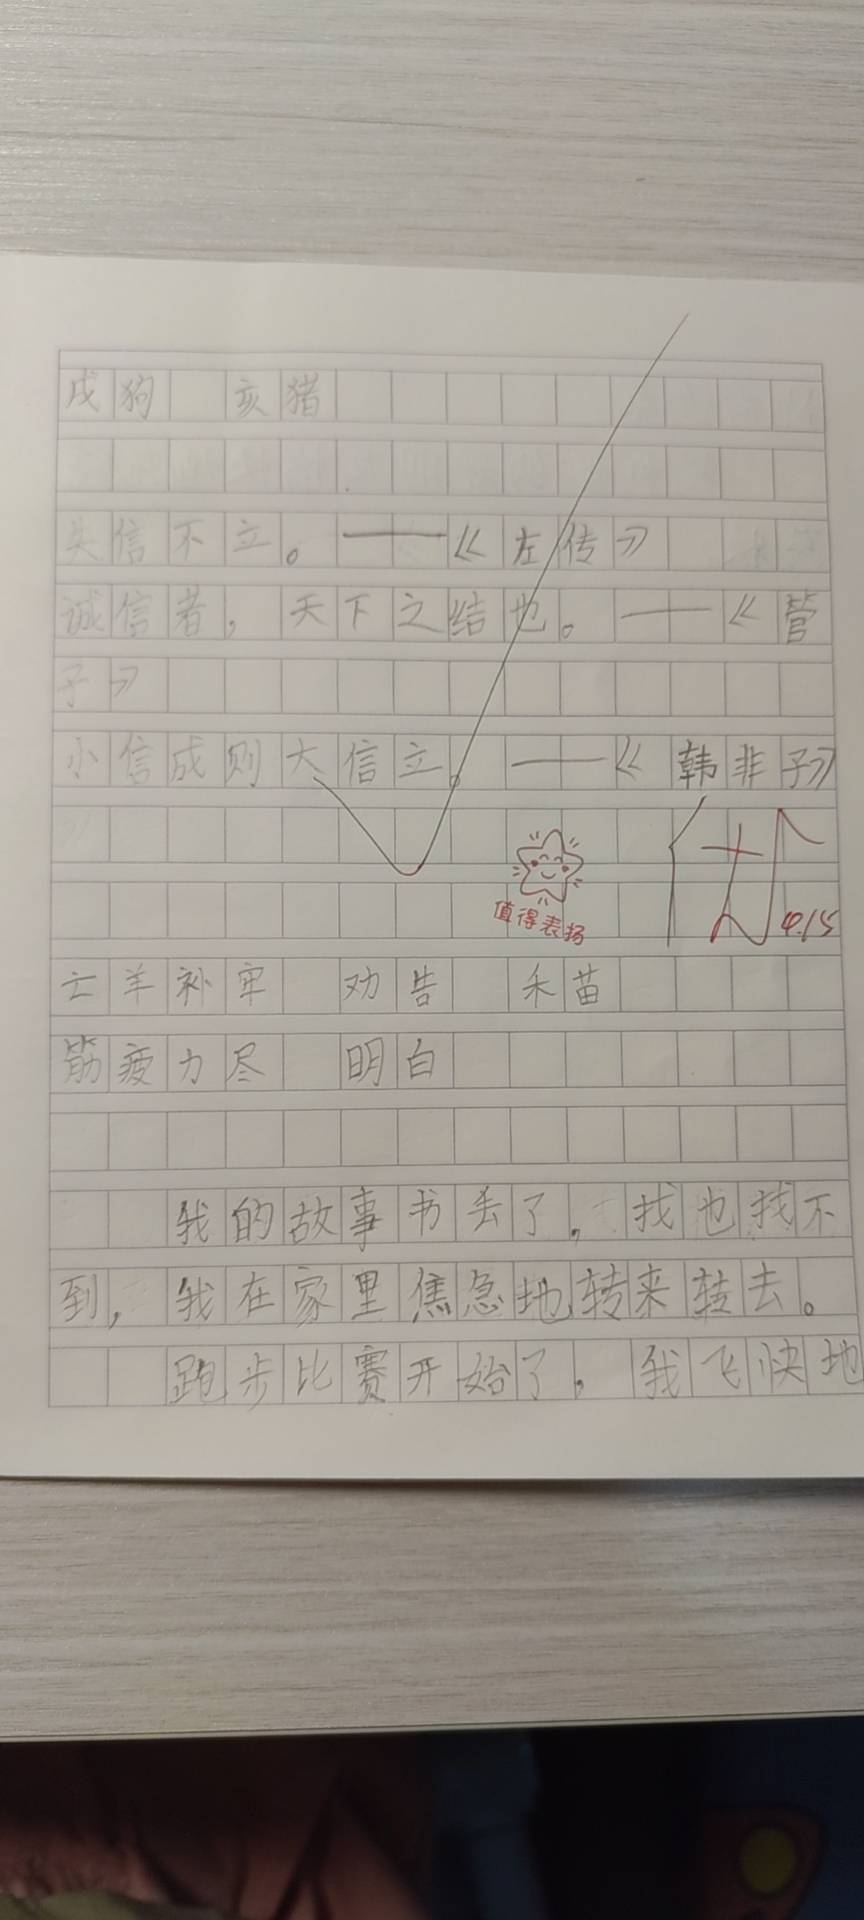 戌狗 亥猪
失信不立。——《左传》
诚信者，天下之结也。——《管
子》
小信成则大信立。——《韩非子》
值得表扬
优
4.15
亡羊补牢 劝告 禾苗
筋疲力尽 明白
我的故事书丢了，找也找不
到，我在家里焦急地转来转去。
跑步比赛开始了，我飞快地